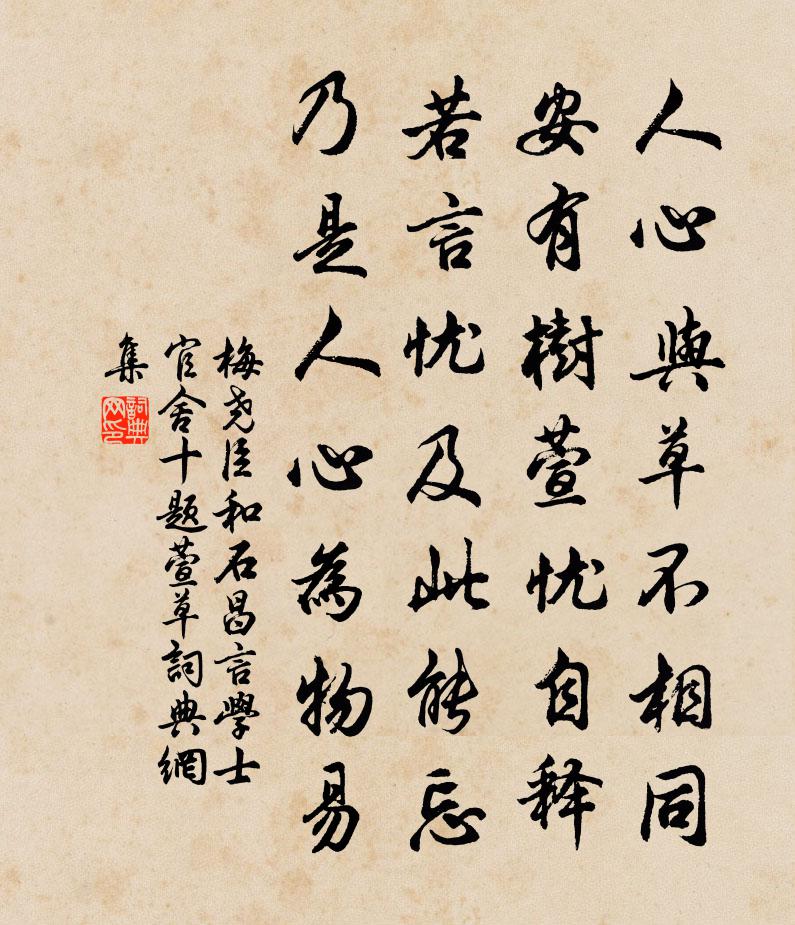 人心與草不相同
安有樹萱忧自释
若言忧及此能忘
乃是人心為物易
梅尧臣和石昌言學士
官舍十题萱草詞典網
集
詞典网印